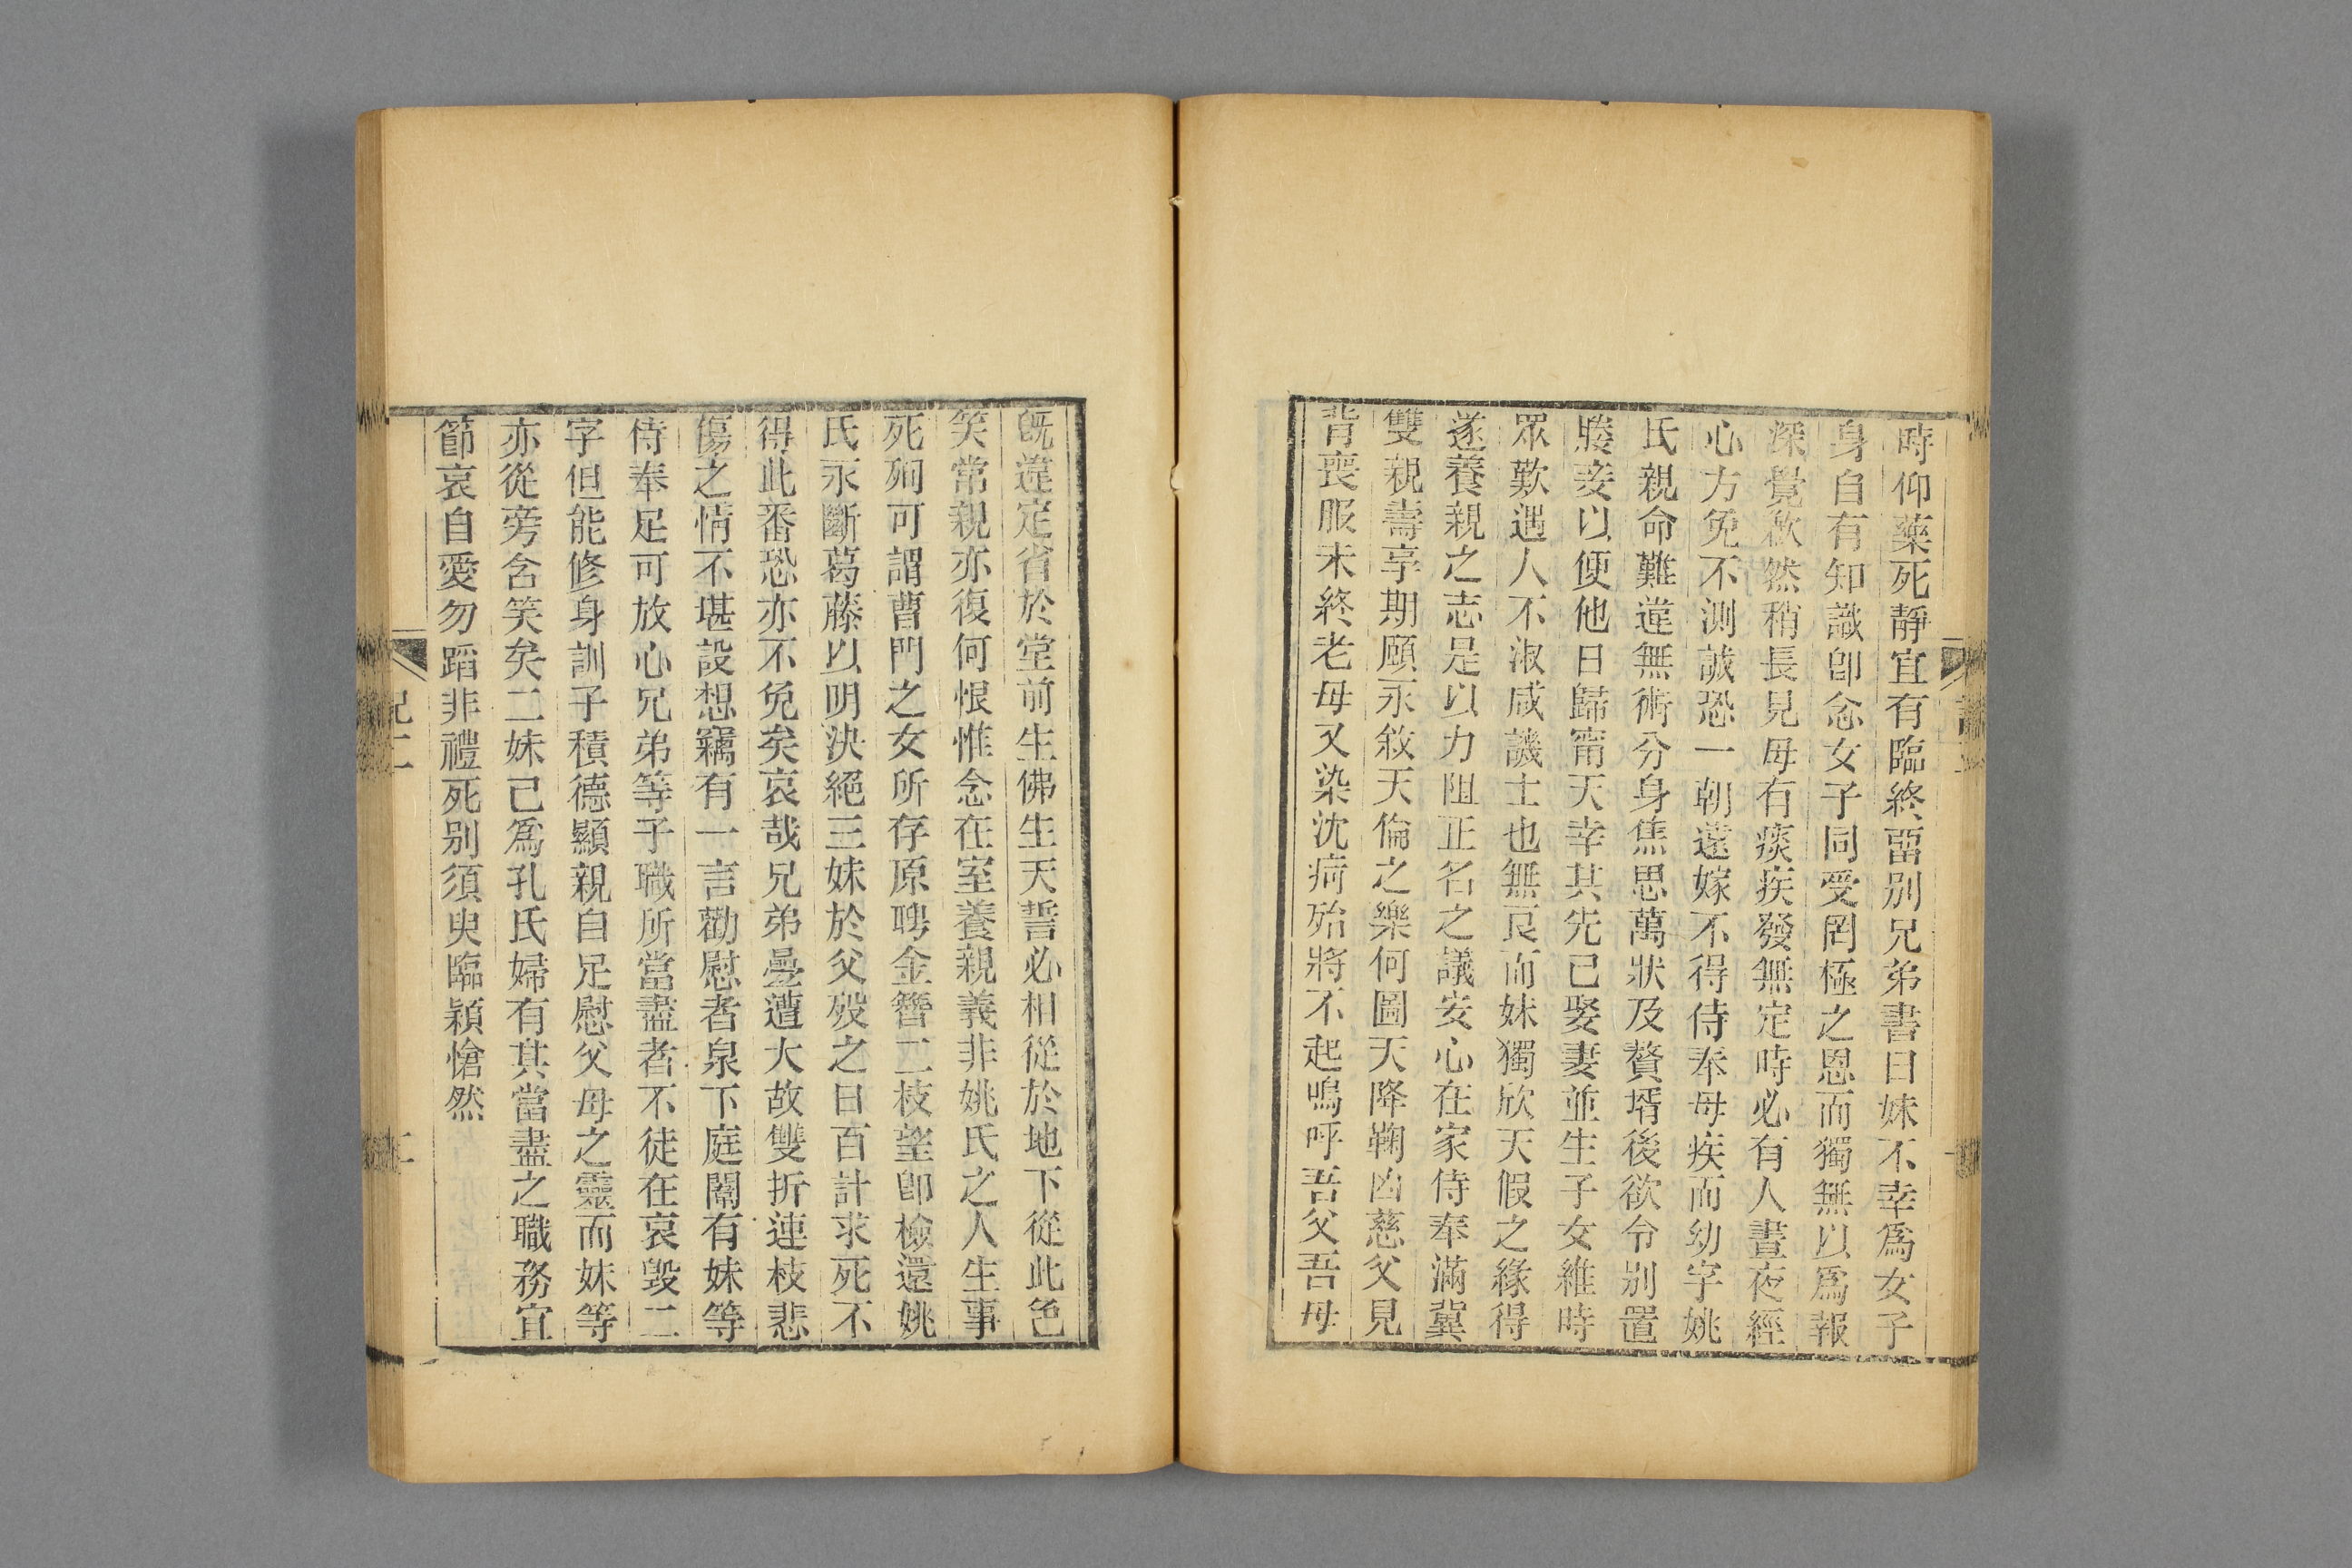 時仰藥死靜宜有臨終畱別兄弟書曰妹不幸爲女子
身自有知識卽念女子同受罔極之恩而獨無以爲報
深覺歉然稍長見母有痰疾發無定時必有人晝夜經
心方免不測誠恐一朝遠嫁不得侍奉母疾而幼字姚
氏親命難違無術分身焦思萬狀及贅壻後欲令別置
媵妾以便他日歸甯天幸其先已娶妻並生子女維時
眾歎遇人不淑咸譏士也無良而妹獨欣天假之緣得
遂養親之志是以力阻正名之議安心在家侍奉滿冀
雙親壽享期頤永敘天倫之樂何圖天降鞠凶慈父見
背喪服未終老母又染沈疴殆將不起嗚呼吾父吾母
旣違定省於堂前生佛生天誓必相從於地下從此色
笑常親亦復何恨惟念在室養親義非姚氏之人生事
死殉可謂曹門之女所存原聘金簪二枝望卽檢還姚
氏永斷葛藤以明決絕三妹於父歿之日百計求死不
得此番恐亦不免矣哀哉兄弟曡遭大故雙折連枝悲
傷之情不堪設想竊有一言勸慰者泉下庭闈有妹等
侍奉足可放心兄弟等子職所當盡者不徒在哀毀二
字但能修身訓子積德顯親自足慰父母之靈而妹等
亦從旁含笑矣二妹已爲孔氏婦有其當盡之職務宜
節哀自愛勿蹈非禮死別須臾臨穎愴然